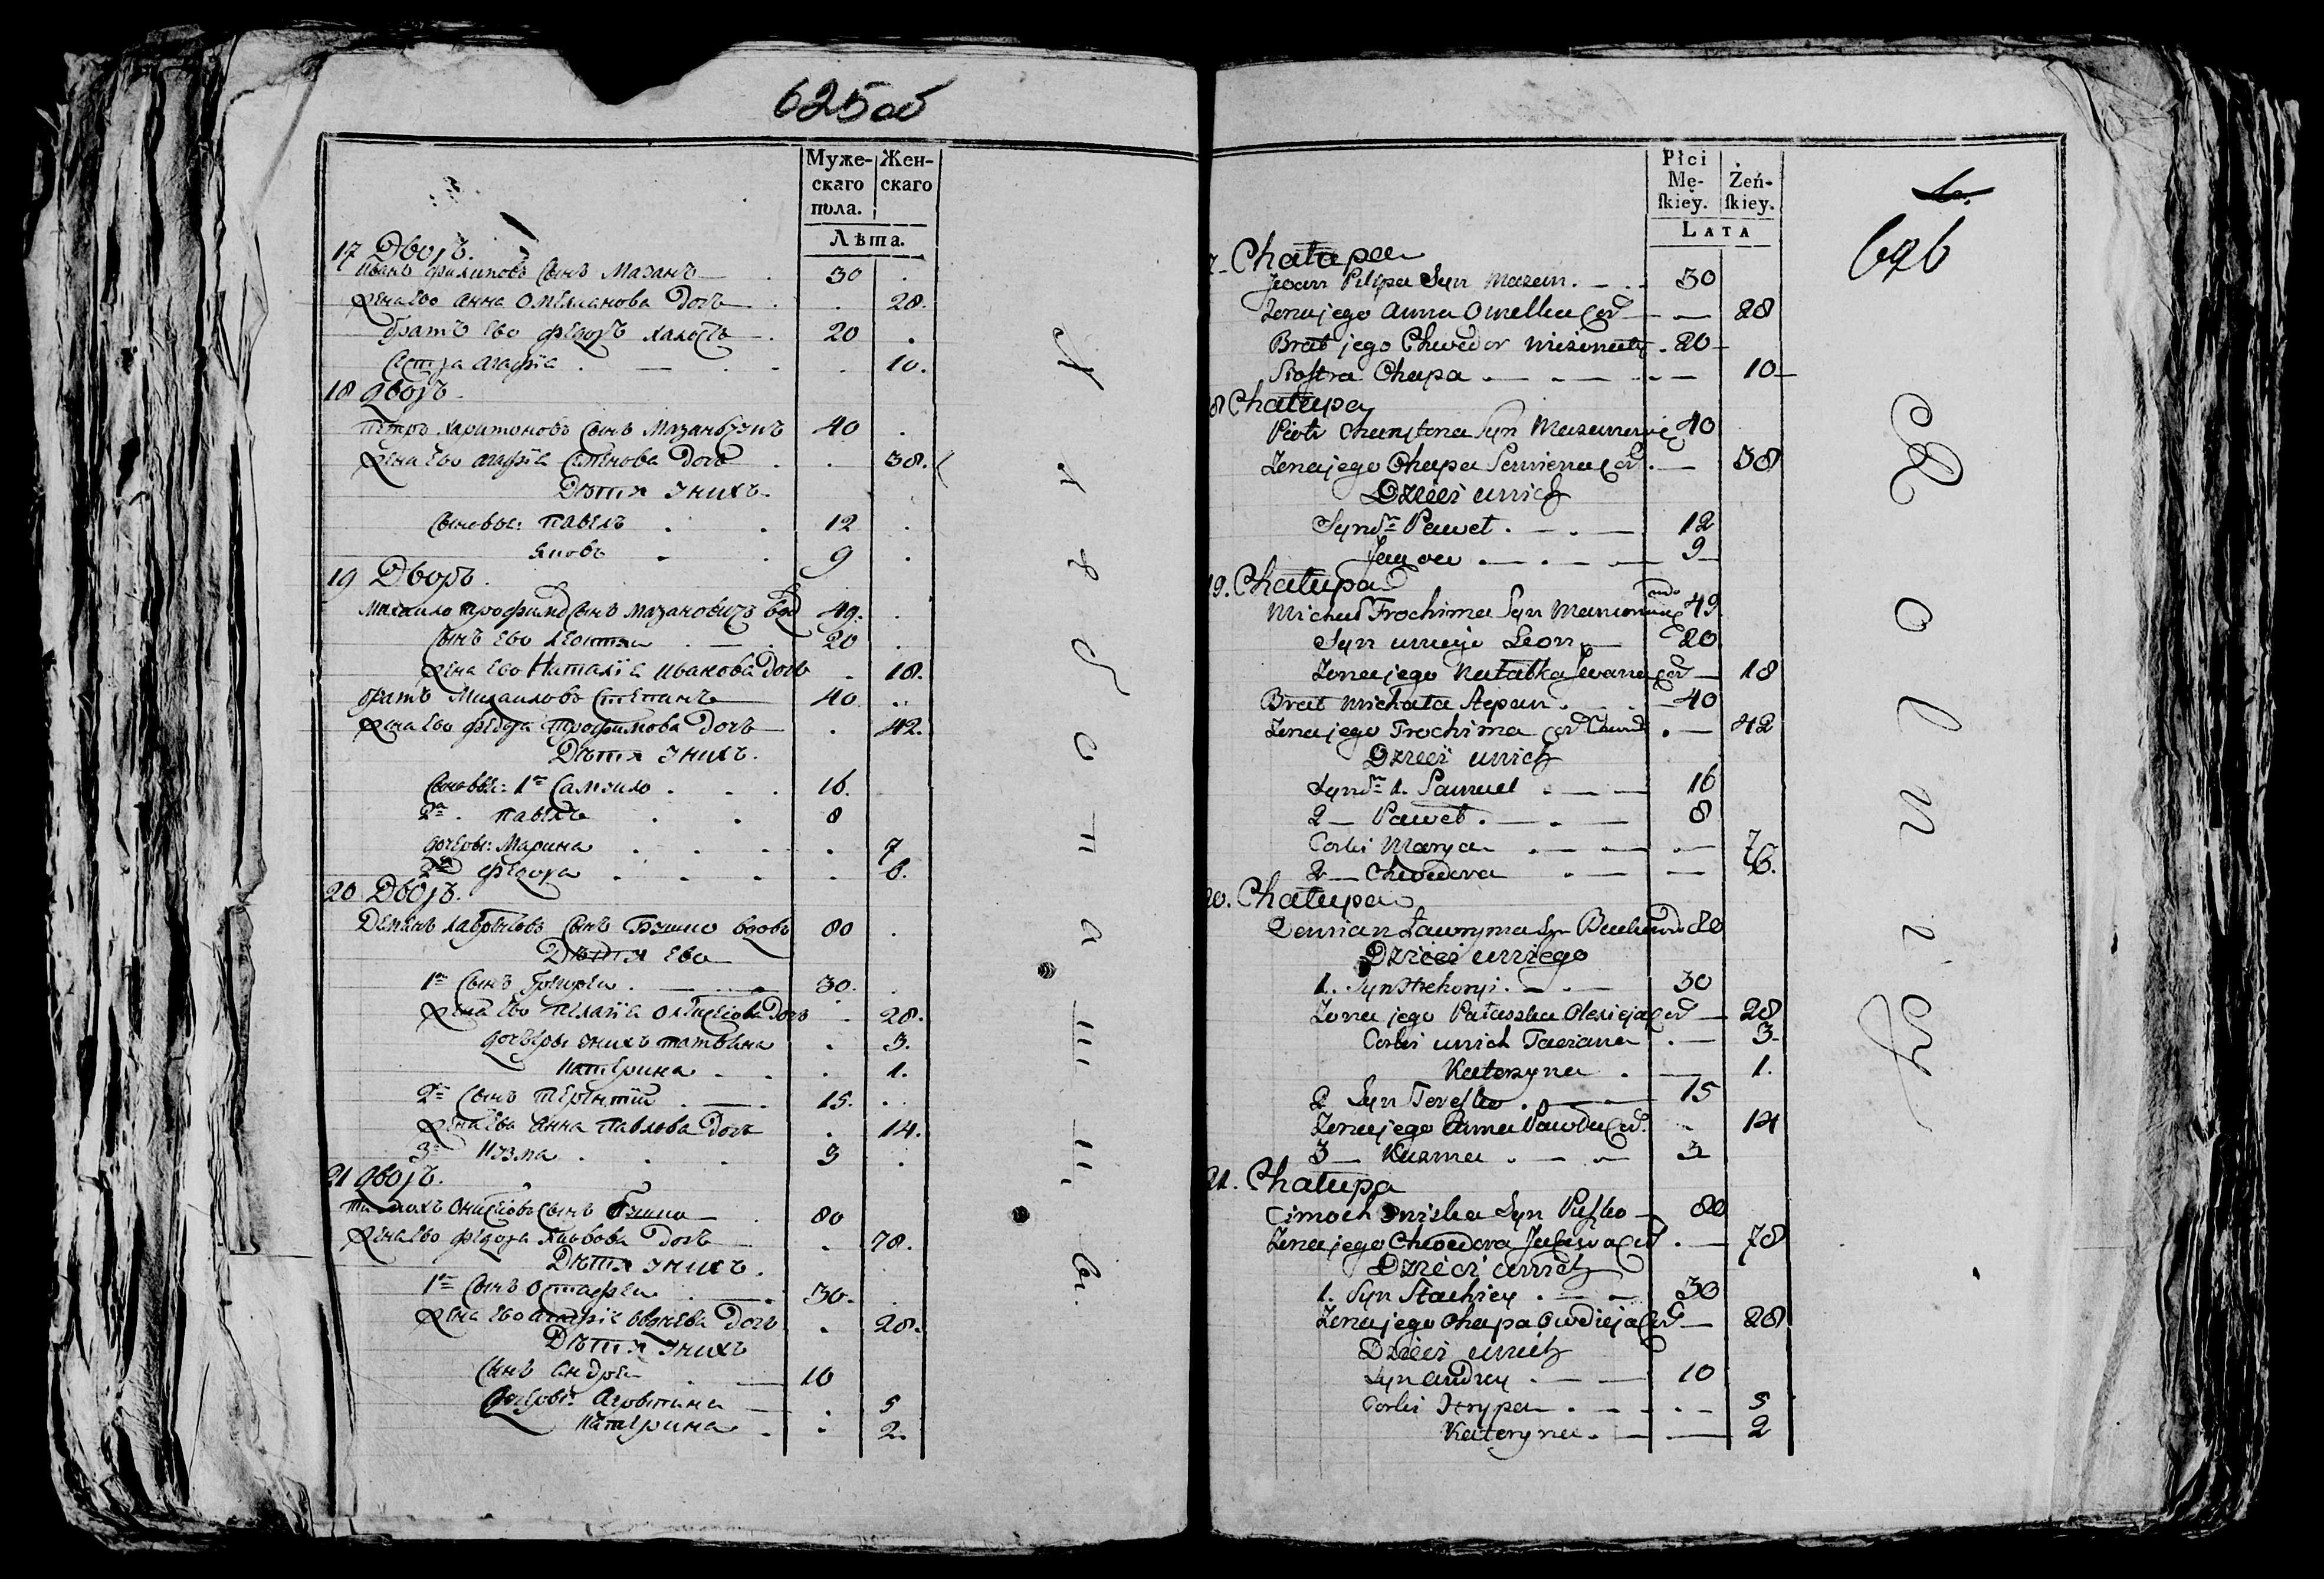 625 об
Муже-
скаго
пола.
Жен-
скаго
Лѣта.
17 Дворъ.
Иванъ Филиповъ Сынъ Мазанъ 30 .
Жена Ево Анна Омеліанова Дочь . 28.
братъ Ево Федоръ холостъ 20 .
Сестра Агафіа . 10.
18 дворъ.
Петръ Харитоновъ Сынъ 40 .
Жена Ево Агафіа Семенова Дочь . 38.
Дѣти Унихъ.
Сыновьи: Павелъ 12 .
Яковъ 9 .
19 Дворъ.
Михаило Трофимовъ Сынъ Мазановичъ вдо 49. .
Сынъ Ево Леонтеи 20 .
Жена Ево Наталіа Иванова Дочь . 18.
братъ Михаиловъ Степанъ 40. .
Жена Ево Федора Трофимова Дочь . 42.
Дѣти Унихъ.
Сыновьи: 1й Самуило 16.
2й Павелъ 8
дочеры: Марина . 7
2я Федора . 6.
20 Дворъ.
Демянъ Лавреновъ Сынъ вдовъ 80 .
Дѣти Ево
1й Сынъ Григореи 30. .
Жена Ево Пелагіа Олексеова Дочь . 28.
дочеры унихъ Татьяна . 3.
Катерина . 1.
2й Сынъ Терентіи 15. .
Жена Ево Анна Павлова Дочь . 14.
3й Кузма 3 .
21 дворъ.
Тимохъ Онисковъ Сынъ 80
Жена Ево Федора Дочь . 78.
Дѣти Унихъ.
1й Сынъ Остафеи 30. .
Жена Ево Агафіа Дочь . 28.
Дѣти Унихъ
Сынъ Андреи 10
Дочеры: . 5
Катерина . 2.
Płci
Mę-
ſkiey.
Żeń-
ſkiey.
LATA
696
Chałupa
Jwan Pilipa Syn Mazan 30
Zona jego Anna Omelka Cor 28
Brat jego Chwedor nieżonaty 20
Siostra Ohapa 10
8 Chałupa
Piotr Charytona Syn 40
Zona jego Ohapa Semiena Cor 38
Dzieci unich
Synów Paweł 12
Jakow 9
19. Chałupa
Michał Trochima Syn 49
Syn uniego Leon 20
Zona jego Natalka Jwana Cor 18
Brat Michała Stepan 40
Zona jego Trochima Cor Chwed 42
Dzieci unich
Synów 1. Samuel 16
2 Paweł 8
Corki Marya 7
2 Chwedora 6.
20. Chałupa
Demian Ławryna Syn 80
Dzieci uniego
1. Syn Hrehory 30
Zona jego Pałaszka Olexieja Cor 28
Corki unich Taciana 3
Kateryna 1.
2 Syn Tereszko 15
Zona jego Anna Pawła Cor 14
3 Kuzma 3
21. Chałupa
Timoch Oniska Syn 80
Zona jego Chwedora Cor 78
Dzieci unich
1. Syn Stachiey 30
Zona jego Ohapa Owdieja Cor 28
Dzieci unich
Syn Andrey 10
Corki Hrypa 5
Kateryna 2